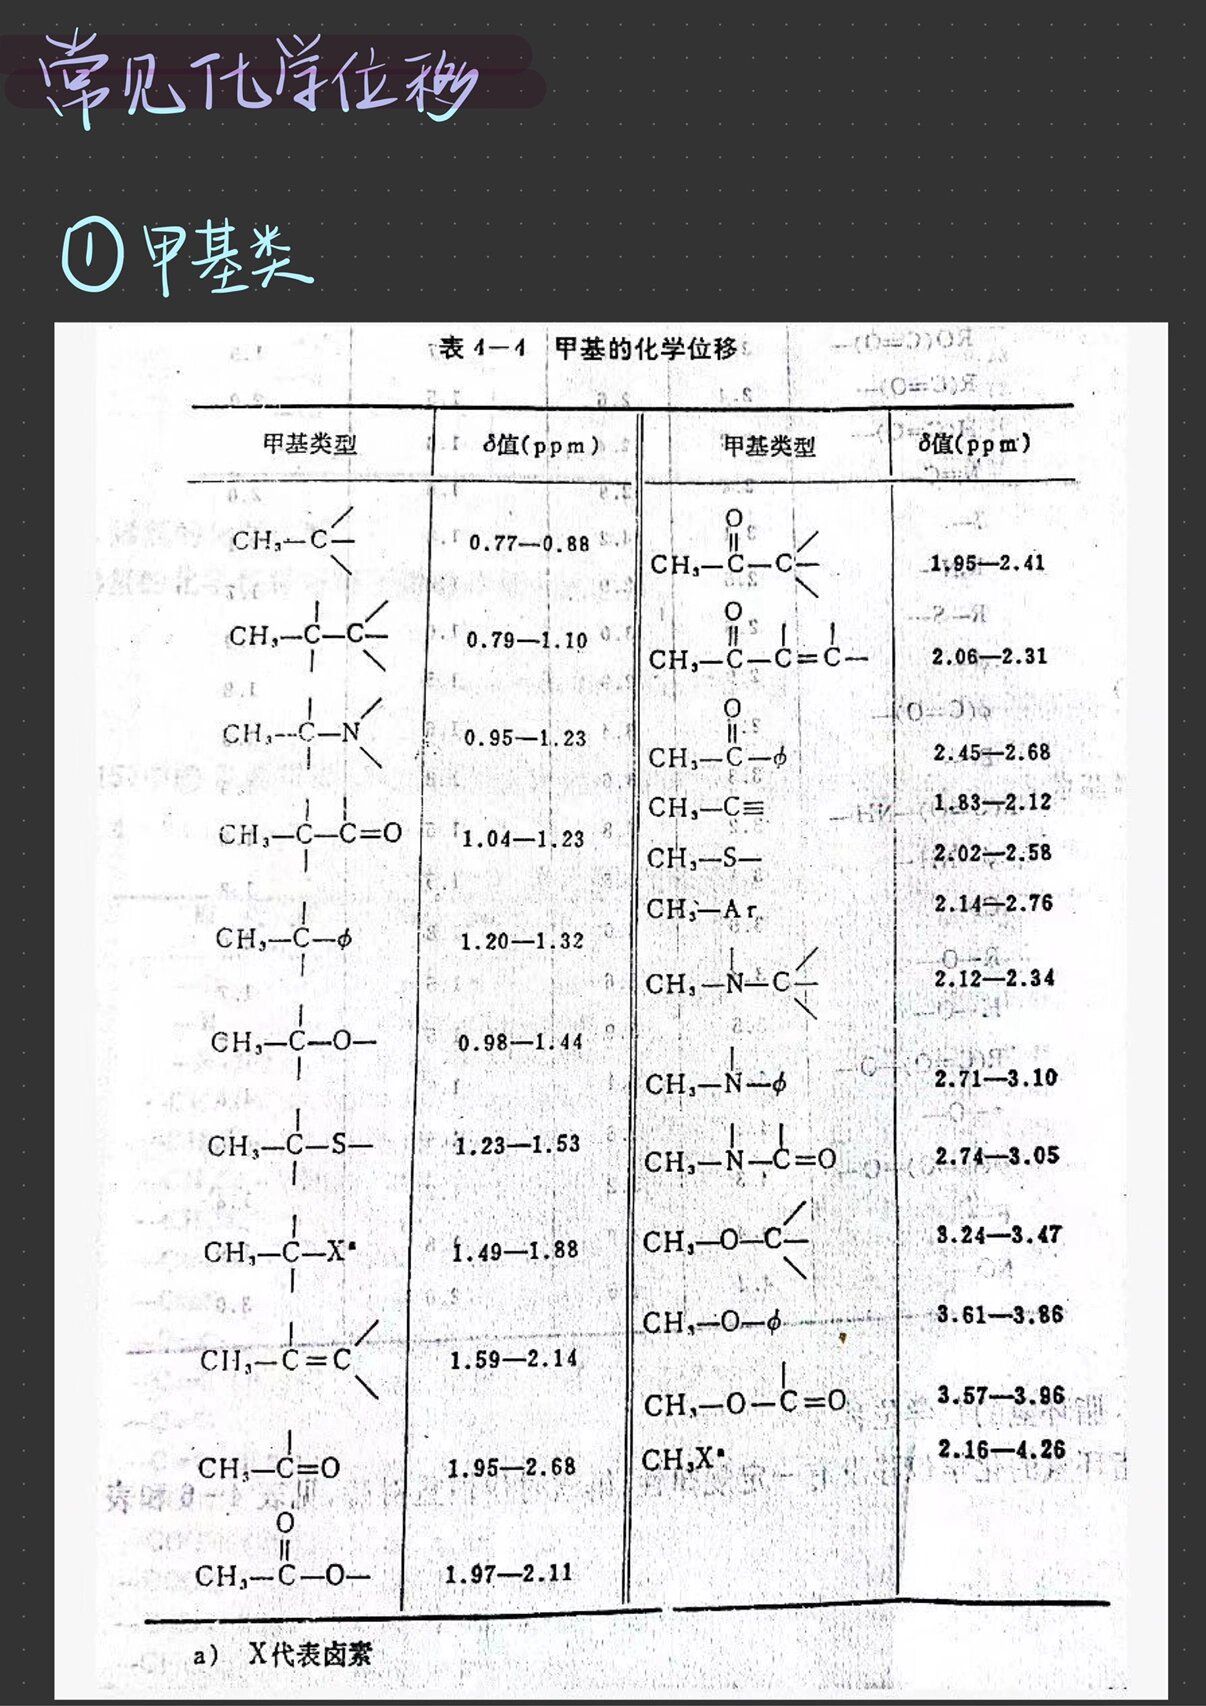 常见化学位移
①甲基类
表4—4 甲基的化学位移
甲基类型 δ值(ppm) 甲基类型 δ值(ppm)
CH₃—C— 0.77—0.88
CH₃—C—C— 0.79—1.10
CH₃—C—N 0.95—1.23
CH₃—C—C=O 1.04—1.23
CH₃—C—ϕ 1.20—1.32
CH₃—C—O— 0.98—1.44
CH₃—C—S— 1.23—1.53
CH₃—C—Xᵃ 1.49—1.88
CH₃—C=C 1.59—2.14
CH₃—C=O 1.95—2.68
O
CH₃—C—O— 1.97—2.11
O
CH₃—C—C— 1.95—2.41
O
CH₃—C—C=C— 2.06—2.31
O
CH₃—C—ϕ 2.45—2.68
CH₃—C≡ 1.83—2.12
CH₃—S— 2.02—2.58
CH₃—Ar 2.14—2.76
CH₃—N—C— 2.12—2.34
CH₃—N—ϕ 2.71—3.10
CH₃—N—C=O 2.74—3.05
CH₃—O—C— 3.24—3.47
CH₃—O—ϕ 3.61—3.86
CH₃—O—C=O 3.57—3.96
CH₃Xᵃ 2.16—4.26
a) X代表卤素